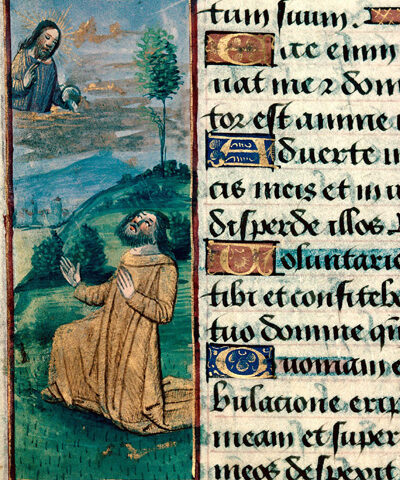 tum suum.
Ecce enim
uat me ⁊ dom
tor est anime
Aduerte m
cis meis et in u
disperde illos.
Voluntarie
tibi et confitebo
tuo domine qm̄
Quoniam e
bulatione erip
meam et super
meos despexit